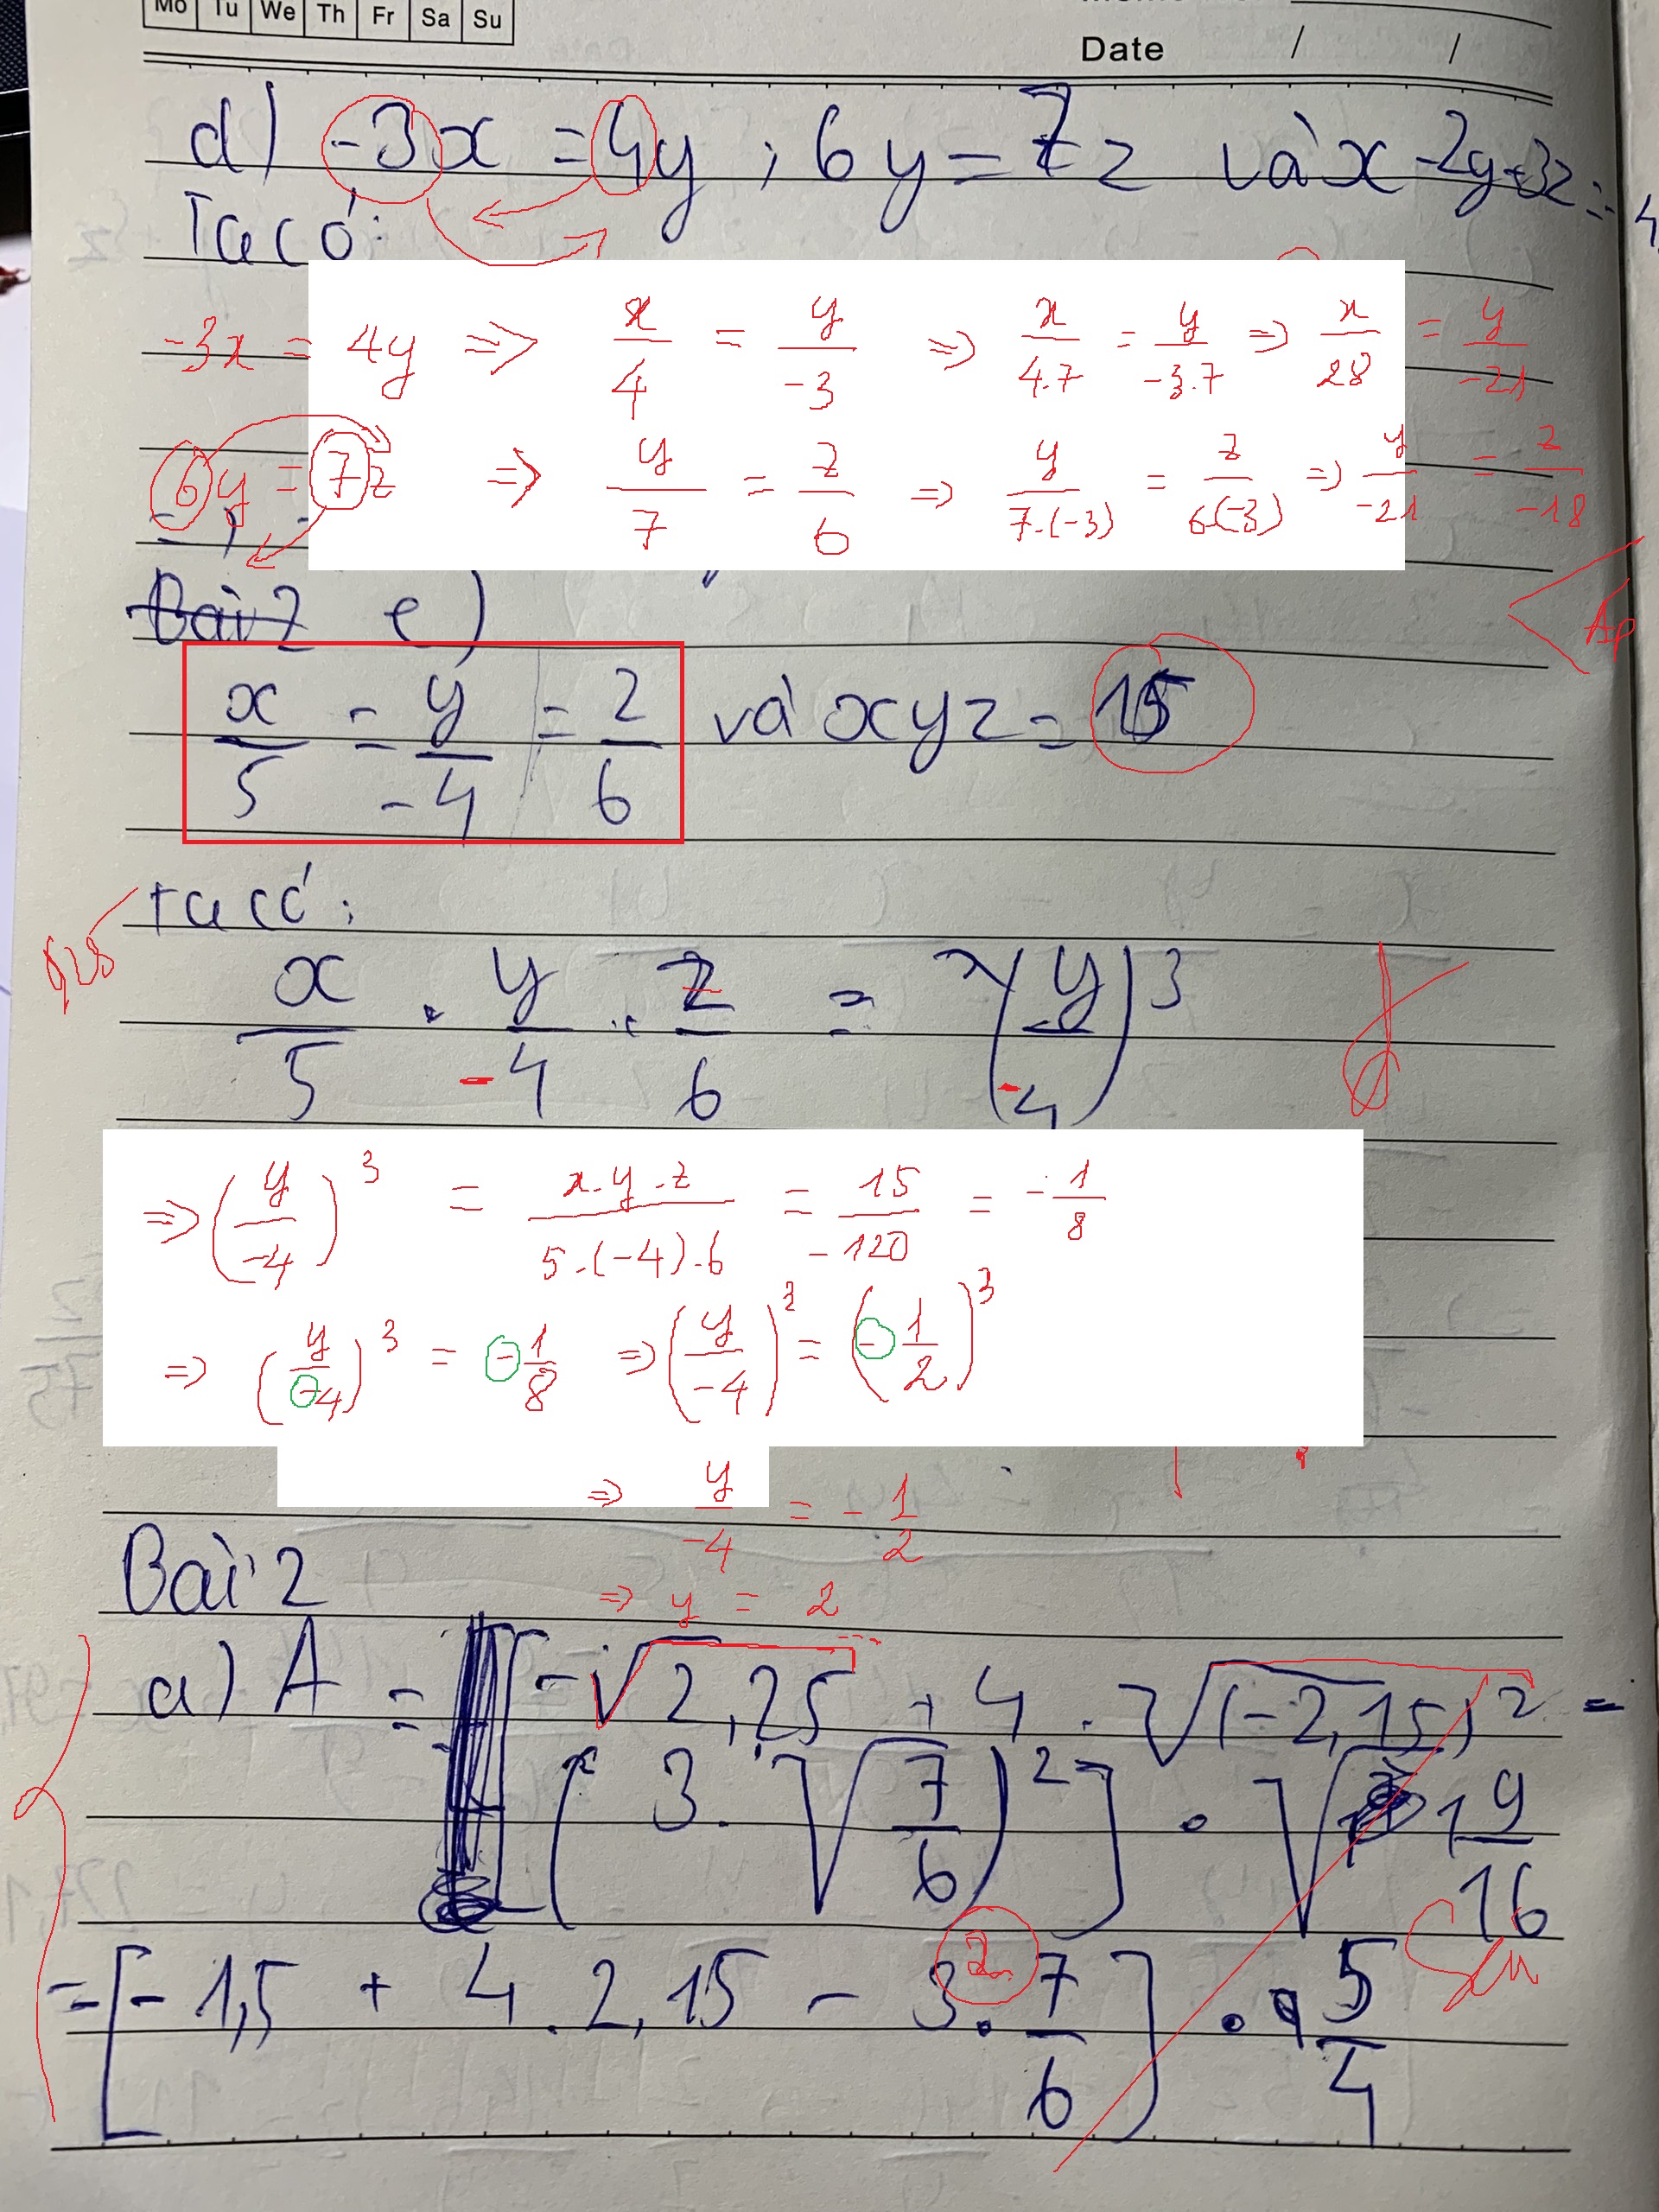 Mo Tu We Th Fr Sa Su
Date / /
d) -3x = 4y ; 6y = 7z và x - 2y + 3z = 4
Ta có:
-3x = 4y => x/4 = y/-3 => x/4.7 = y/-3.7 => x/28 = y/-21
6y = 7z => y/7 = z/6 => y/7.(-3) = z/6.(-3) => y/-21 = z/-18
Áp
Bài 2 e)
x/5 = y/-4 = z/6 và xyz = 15
Ta có:
x/5 . y/-4 . z/6 = (y/-4)^3
=> (y/-4)^3 = x.y.z/5.(-4).6 = 15/-120 = -1/8
=> (y/-4)^3 = -1/8 => (y/-4)^3 = (-1/2)^3
=> y/-4 = -1/2
Bài 2
=> y = 2
a) A = [-√2,25 + 4 . √(-2,15)^2 -
(3 . √7/6)^2] . √1 9/16
= [-1,5 + 4 . 2,15 - 3^2 . 7/6] . 5/4